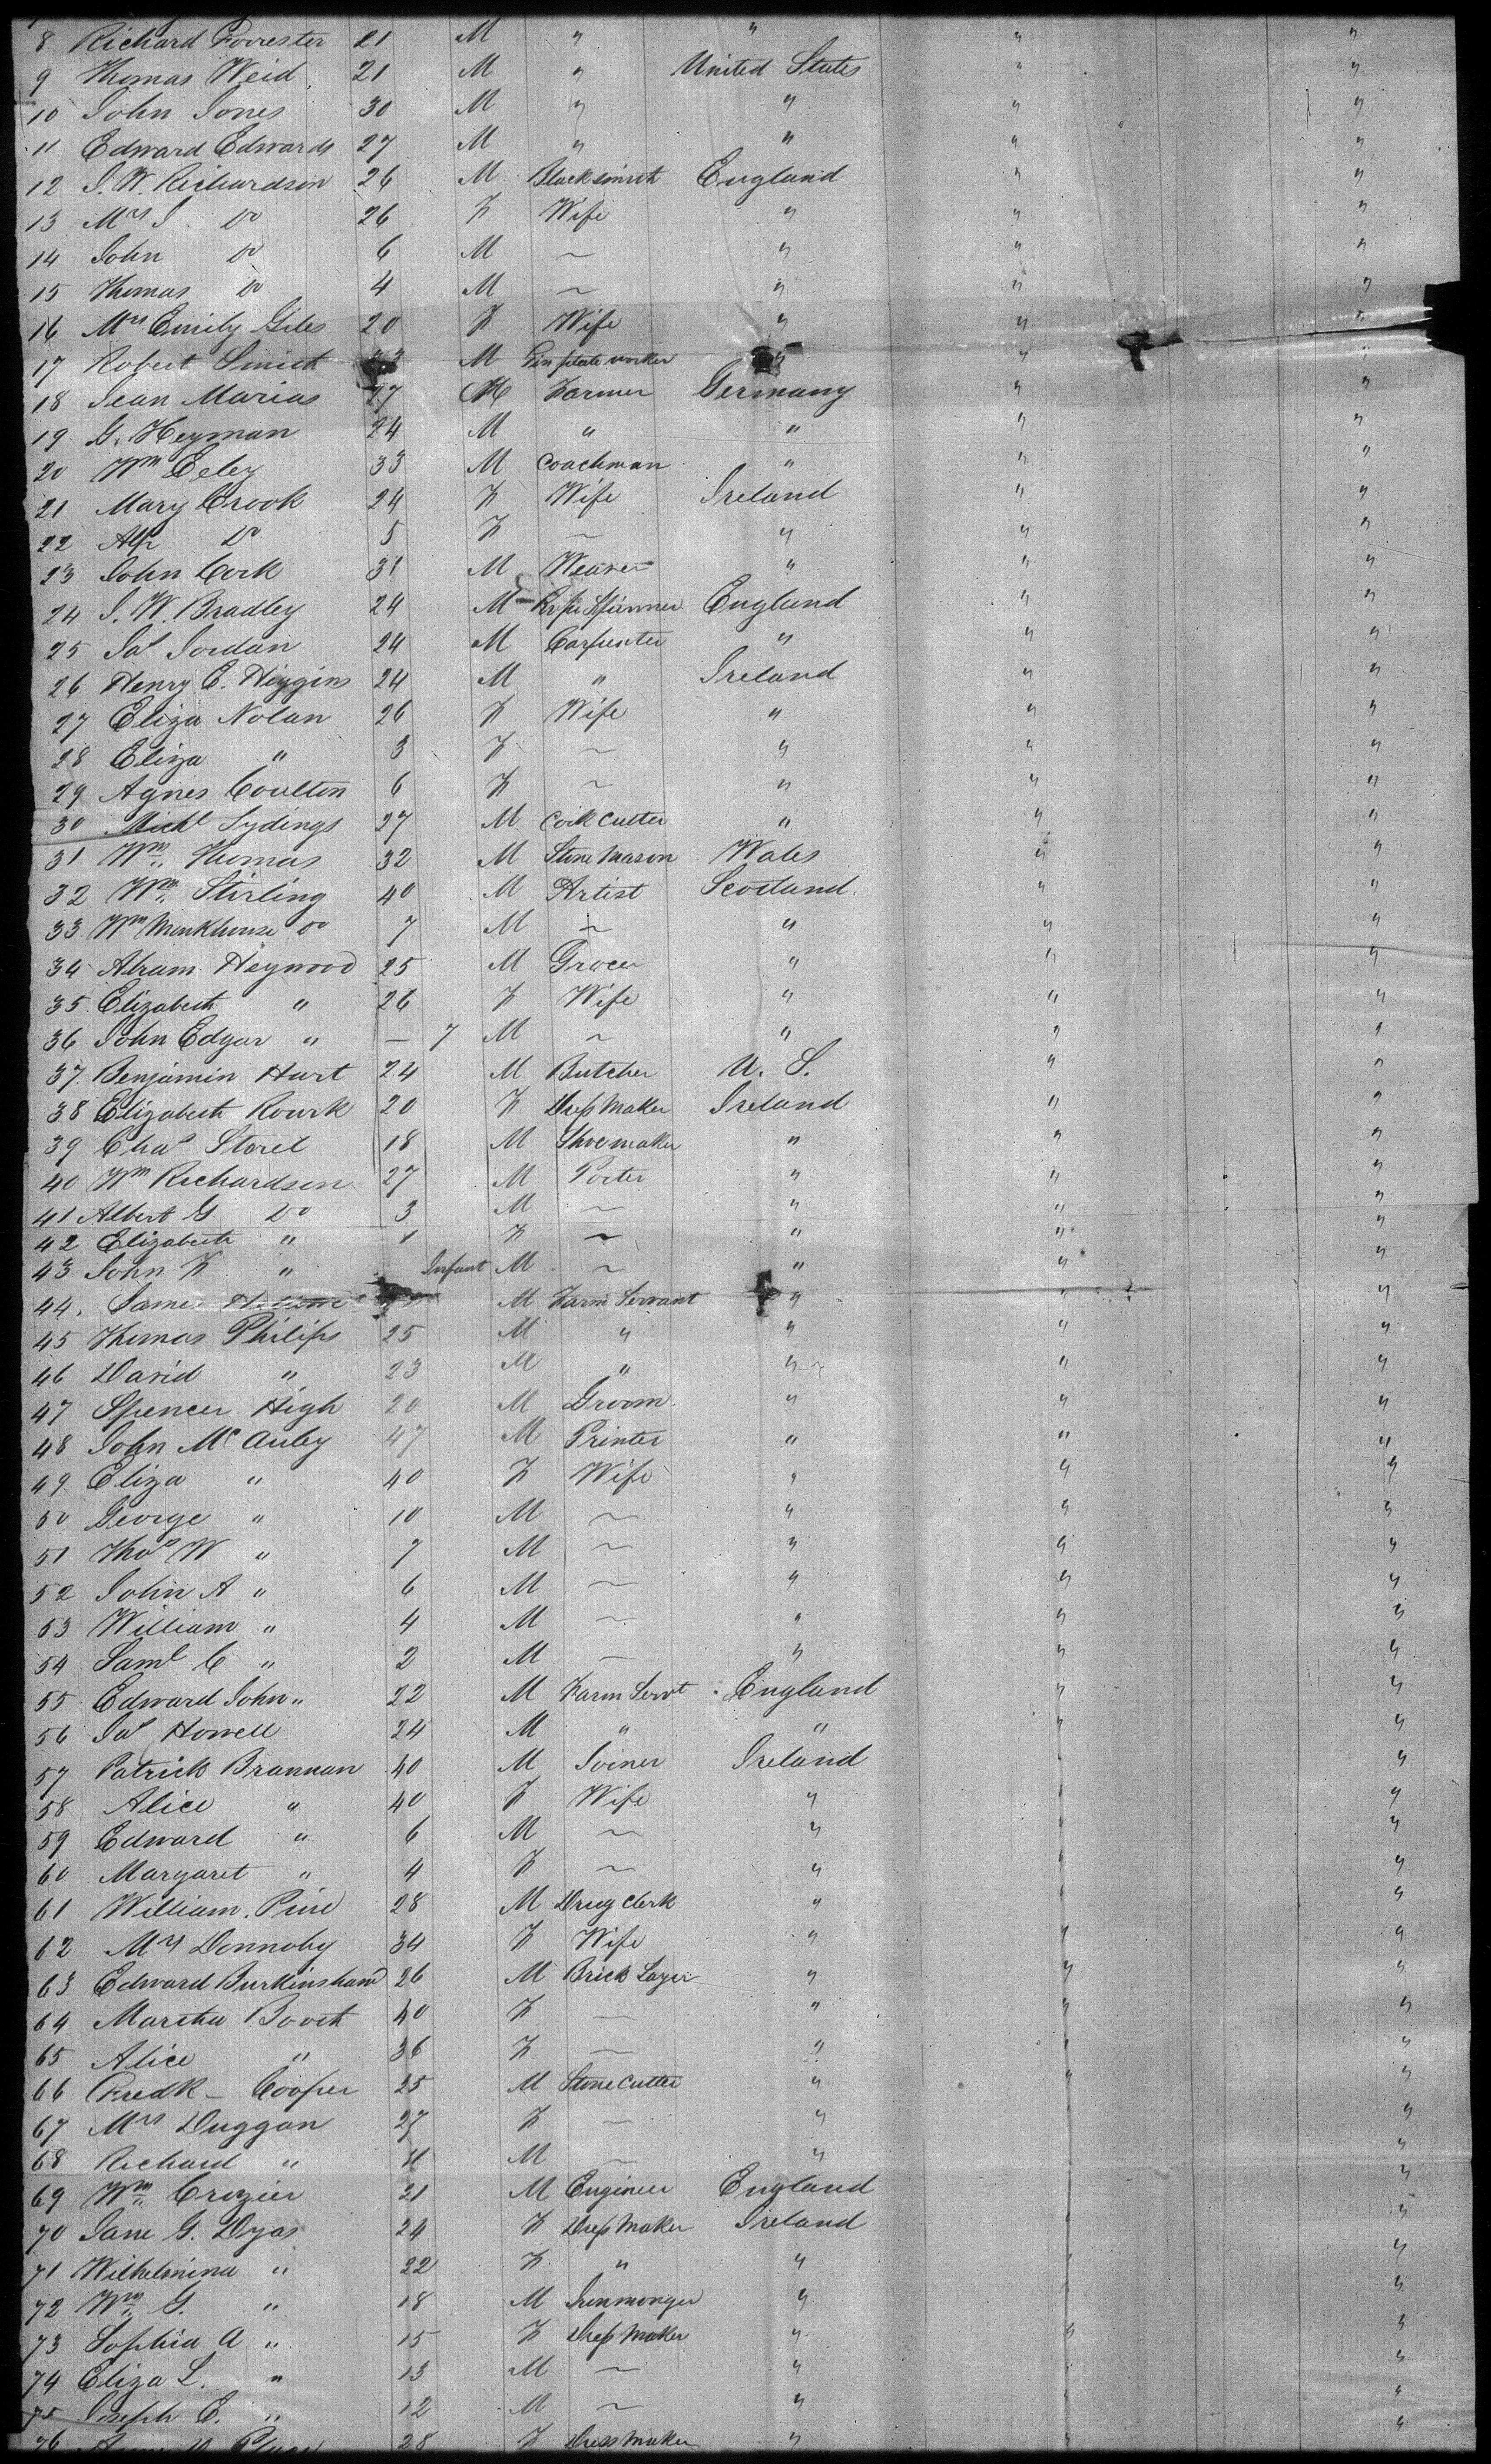 8 Richard Forrester 21 M " " " "
9 Thomas Weid 21 M " United States " "
10 John Jones 30 M " " " "
11 Edward Edwards 27 M " " " "
12 J. W. Richardson 26 M Blacksmith England " "
13 Mrs J. Do 26 F Wife " " "
14 John Do 6 M ~ " " "
15 Thomas Do 4 M ~ " " "
16 Mrs Emily Giles 20 F Wife " " "
17 Robert Smith M Tin plate worker " " "
18 Jean Marias 27 M Farmer Germany " "
19 G. Heyman 24 M " " " "
20 Wm Eeley 33 M Coachman " " "
21 Mary Crook 24 F Wife Ireland " "
22 Do 5 F ~ " " "
23 John Cork 31 M Weaver " " "
24 J. W. Bradley 24 M Spinner England " "
25 Jas Jordan 24 M Carpenter " " "
26 Henry C. Higgins 24 M " Ireland " "
27 Eliza Nolan 26 F Wife " " "
28 Eliza " 3 F ~ " " "
29 Agnes Coulton 6 F ~ " " "
30 Michl Sydings 27 M Cork Cutter " " "
31 Wm Thomas 32 M Stone Mason Wales " "
32 Wm Stirling 40 M Artist Scotland " "
33 Wm Monkhouse Do 7 M ~ " " "
34 Abram Heywood 25 M Grocer " " "
35 Elizabeth " 26 F Wife " " "
36 John Edgar " — 7 M ~ " " "
37 Benjamin Hurt 24 M Butcher U. S. " "
38 Elizabeth Rourk 20 F Dress Maker Ireland " "
39 Chas Storel 18 M Shoemaker " " "
40 Wm Richardson 27 M Porter " " "
41 Albert G. Do 3 M ~ " " "
42 Elizabeth " 1 F ~ " " "
43 John F. " Infant M ~ " " "
44. James M Farm Servant " " "
45 Thomas Philips 25 M " " " "
46 David " 23 M " " " "
47 Spencer High 20 M Groom " " "
48 John McAuley 47 M Printer " " "
49 Eliza " 40 F Wife " " "
50 George " 10 M ~ " " "
51 Thos W " 7 M ~ " " "
52 John A " 6 M ~ " " "
53 William " 4 M ~ " " "
54 Saml C " 2 M ~ " " "
55 Edward John " 22 M Farm Servt England " "
56 Jas Howell 24 M " " " "
57 Patrick Brannan 40 M Joiner Ireland " "
58 Alice " 40 F Wife " " "
59 Edward " 6 M ~ " " "
60 Margaret " 4 F ~ " " "
61 William Pirie 28 M Drug Clerk " " "
62 Mrs Donnoby 34 F Wife " " "
63 Edward Burkinshaw 26 M Brick Layer " " "
64 Martha Booth 40 F — " " "
65 Alice " 36 F — " " "
66 Fredk Cooper 25 M Stone Cutter " " "
67 Mrs Duggan 27 F ~ " " "
68 Richard " 11 M ~ " "
69 Wm Crozier 21 M Engineer England "
70 Jane G. Dyas 24 F Dress Maker Ireland " "
71 Wilhelmina " 22 F " " " "
72 Wm G. " 18 M Ironmonger " "
73 Sophia A " 15 F Dress Maker " " "
74 Eliza L. " 13 M ~ " " "
75 Joseph E. " 12 M ~ " " "
76 28 F Dress Maker " " "